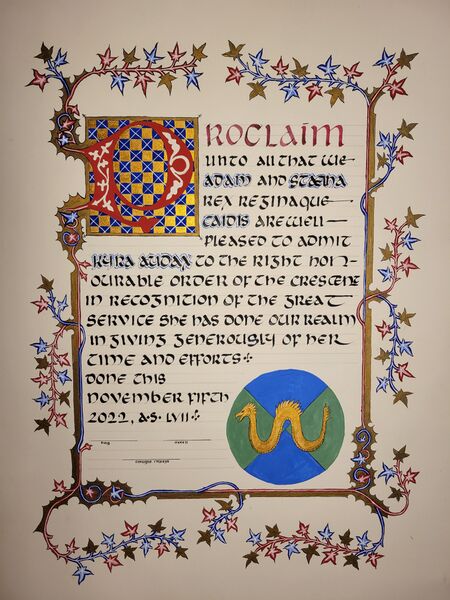 PROCLAIM
unto all that we
ADAM and STÆINA
REX REGINAQUE
CAIDIS are well
pleased to admit
KYRA AUDAX to the right hon-
ourable order of the crescent
in recognition of the great
service she has done our realm
in giving generously of her
time and efforts
done this
november fifth
2022, a.s. LVII
King Queen
Crescent Herald